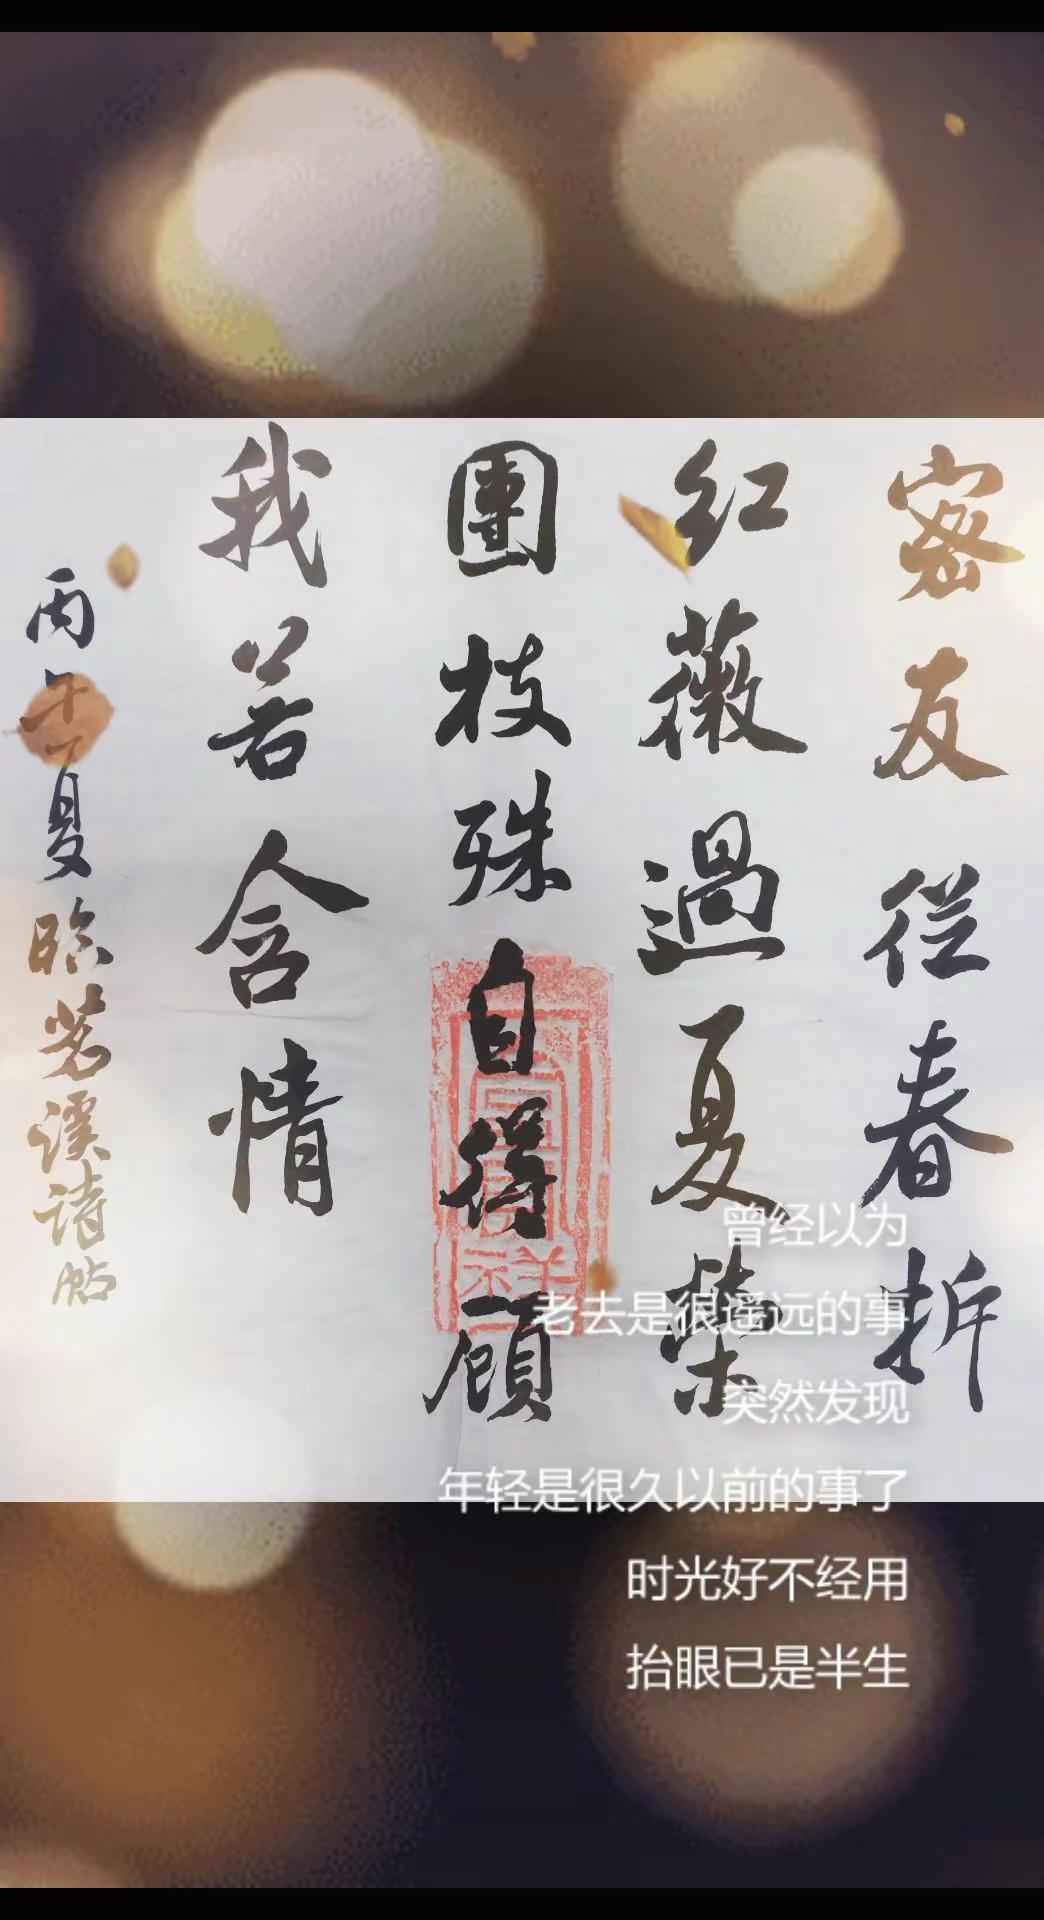 密友從春折
红薇過夏榮
團枝殊自得顧
我若含情
丙午夏臨苕溪詩帖
曾经以为
老去是很遥远的事
突然发现
年轻是很久以前的事了
时光好不经用
抬眼已是半生